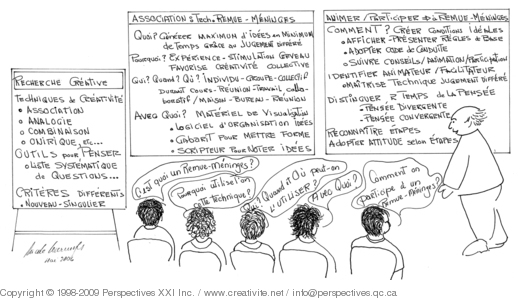 RECHERCHE CRÉATIVE
TECHNIQUES de CRÉATIVITÉ
• ASSOCIATION
• ANALOGIE
• COMBINAISON
• ONIRIQUE, etc...
OUTILS pour PENSER
• LISTE SYSTÉMATIQUE
de QUESTIONS...
CRITÈRES DIFFÉRENTS
• NOUVEAU - SINGULIER
ASSOCIATION & Tech. REMUE - MÉNINGES
QUOI? GÉNÉRER MAXIMUM D'IDÉES en MINIMUM
de TEMPS GRÂCE au JUGEMENT DIFFÉRÉ
POURQUOI? EXPÉRIENCE - STIMULATION CERVEAU
FAVORISE CRÉATIVITÉ COLLECTIVE
QUI? QUAND? OÙ? INDIVIDU - GROUPE - COLLECTIF
DURANT COURS - RÉUNION - TRAVAIL COLLA-
BORATIF / MAISON - BUREAU - RÉUNION
AVEC QUOI? MATÉRIEL DE VISUALISATION
• LOGICIEL D'ORGANISATION IDÉES
• GABARIT POUR METTRE FORME
• SCRIPTEUR POUR NOTER IDÉES
ANIMER / PARTICIPER REMUE - MÉNINGES
COMMENT? CRÉER CONDITIONS IDÉALES
• AFFICHER - PRÉSENTER RÈGLES de BASE
• ADOPTER CODE de CONDUITE
• SUIVRE CONSEILS / ANIMATION / PARTICIPATION
IDENTIFIER ANIMATEUR / FACILITATEUR
• MAÎTRISE TECHNIQUE JUGEMENT DIFFÉRÉ
DISTINGUER 2 TEMPS de LA PENSÉE
- PENSÉE DIVERGENTE
- PENSÉE CONVERGENTE
RECONNAÎTRE ÉTAPES
ADOPTER ATTITUDE SELON ÉTAPES
C'est quoi un Remue-méninges?
Pourquoi utilise t'on
cette technique?
Qui? Quand et Où peut-on
L'UTILISER?
AVEC QUOI?
Comment on
participe à un
Remue-méninges?
Copyright © 1998-2009 Perspectives XXI Inc. / www.creativite.net / info@perspectives.qc.ca